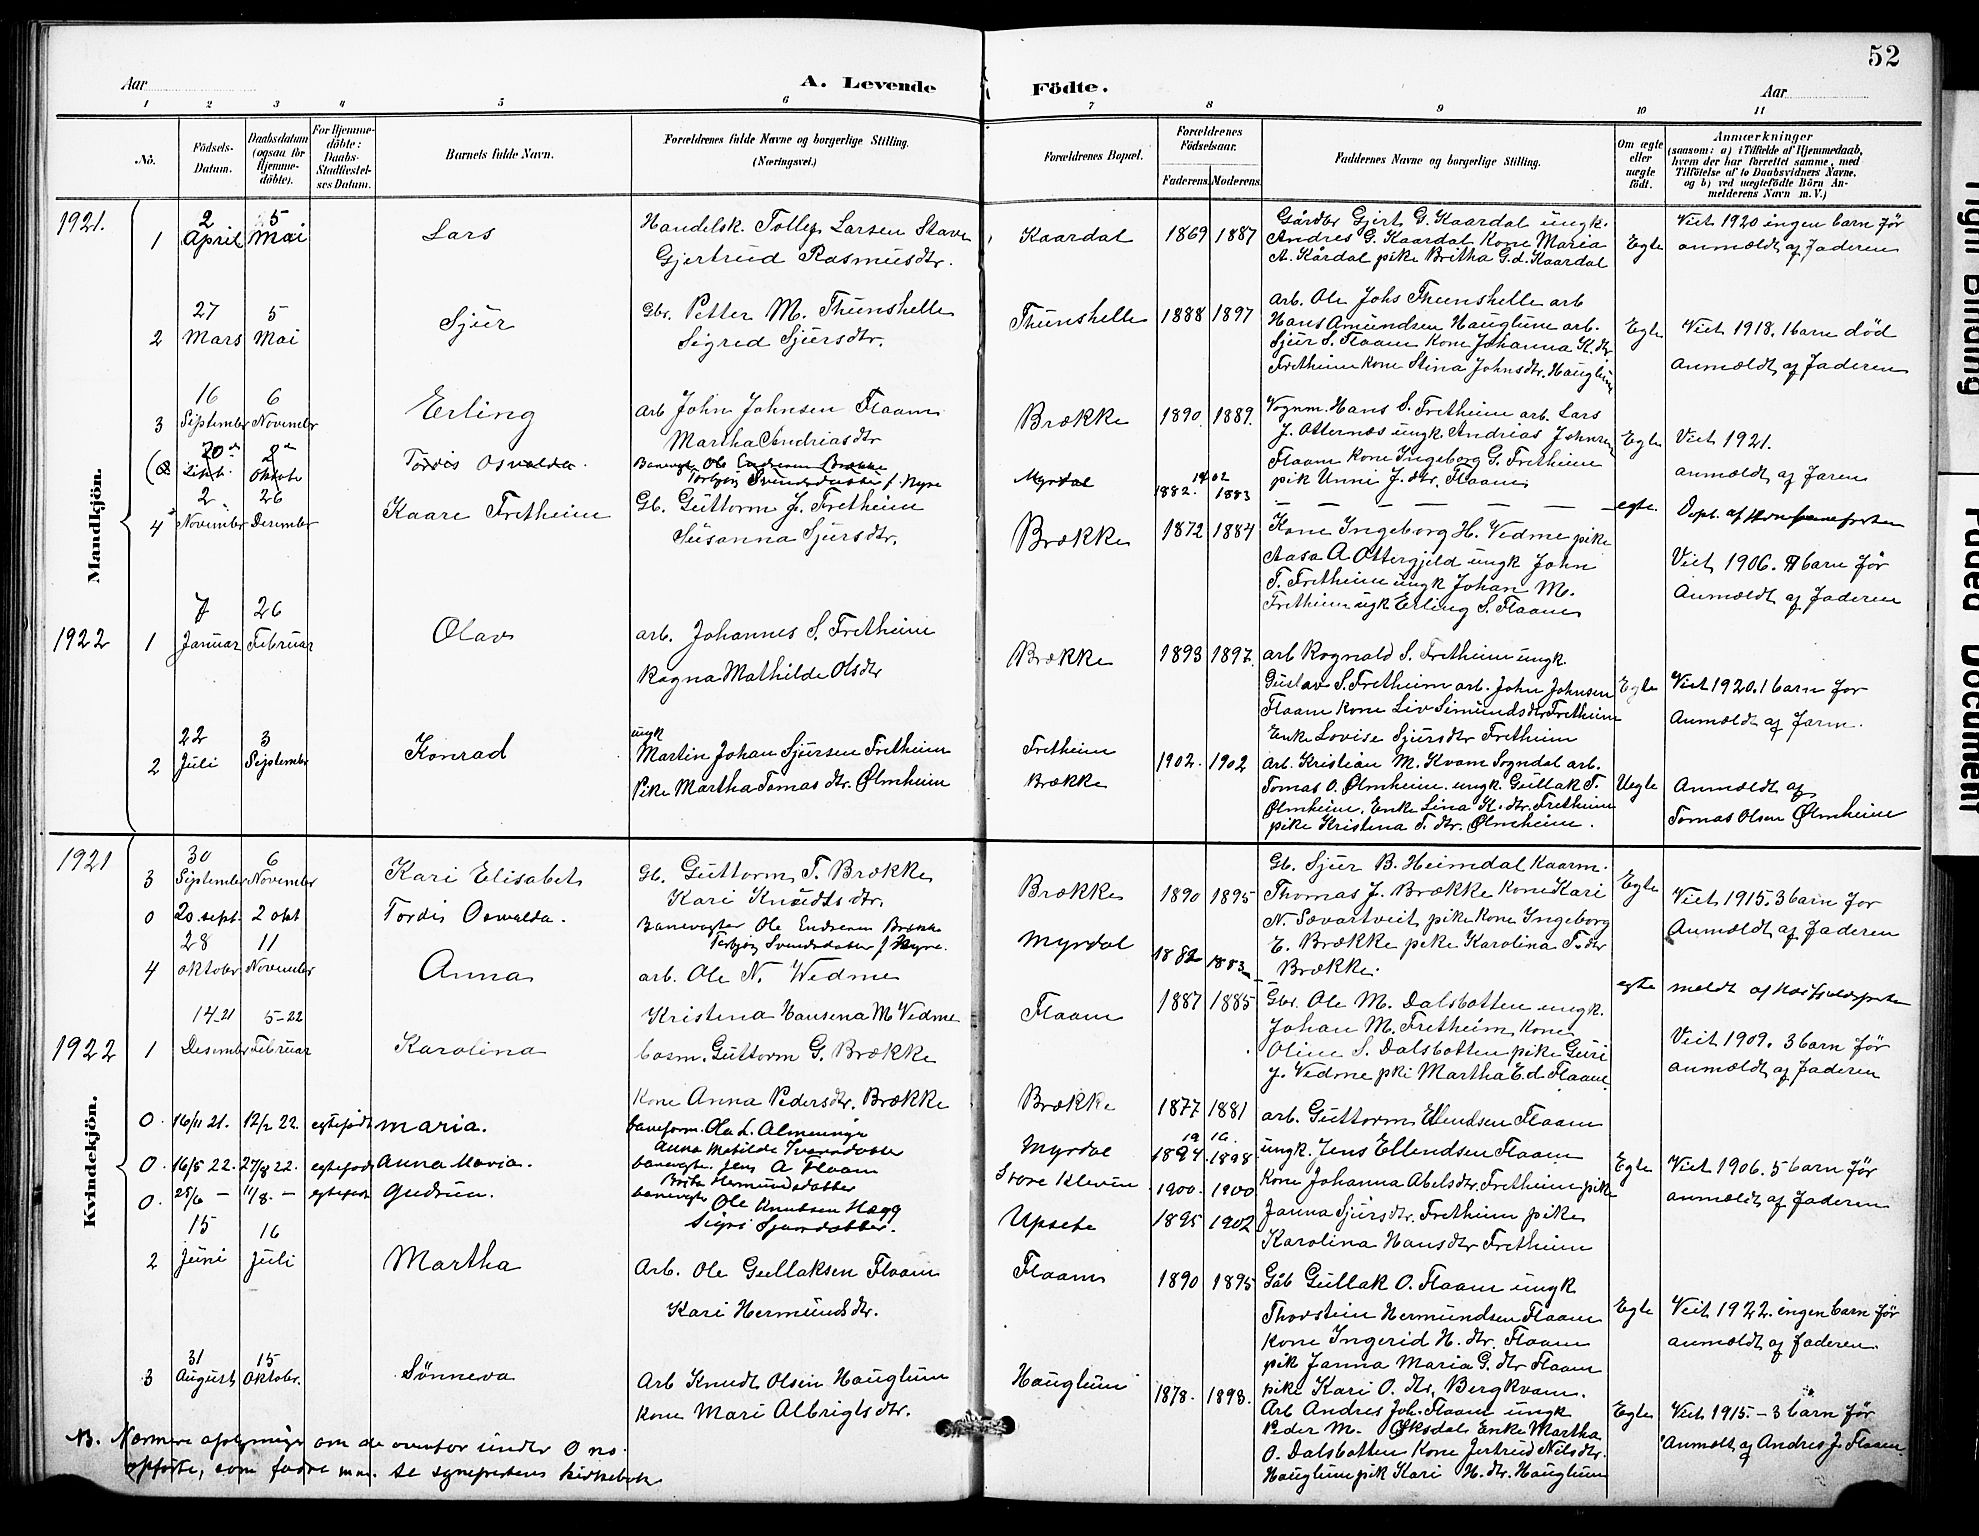 52
Aar
A. Levende Födte.
Aar
1 2 3 4 5 6 7 8 9 10 11
No.
Födsels-Datum.
Daabsdatum (ogsaa for Hjemme-döbte).
For Hjemme-döbte: Daabs-Stadfæstel-ses Datum.
Barnets fulde Navn.
Forældrenes fulde Navne og borgerlige Stilling. (Næringsvei.)
Forældrenes Bopæl.
Forældrenes Födselsaar.
Faderens. Moderens.
Faddernes Navne og borgerlige Stilling.
Om ægte eller uægte födt.
Anmærkninger
(saasom: a) i Tilfælde af Hjemmedaab,
hvem der har forrettet samme, med
Tilföielse af to Daabsvidners Navne,
og b) ved uægtefödte Börn An-
melderens Navn m. V.)
Mandkjön.
1921. 1 2 April 5 Mai Lars
Handelsk. Tollef Larsen Stave
Gjertrud Rasmusdtr.
Kaardal 1869 1887
Gårdbr Gjert G. Kaardal ungk.
Andres G. Kaardal Kone Maria
A. Kårdal pike Britha G.d. Kaardal
Egte
Viet 1920 ingen barn før
anmældt af Faderen
2 27 Mars 5 Mai Sjur
Gbr. Petter M. Thunshelle
Sigrid Sjursdtr.
Thunshelle 1888 1897
arb. Ole Johs Thunshelle arb
Hans Amundsen Hauglum arb.
Sjur S. Flaam Kone Johanna K. dtr
Fretheim Kone Stina Johnsdtr. Hauglum
Egte
Viet 1918. 1 barn død
anmældt af Faderen
3 16 September 6 November Erling
arb John Johnsen Flaam
Martha Andriasdtr
Brække 1890. 1889.
Vognm. Hans S. Fretheim arb. Lars
J. Otternæs ungk. Andrias Johnsen
Flaam Kone Ingeborg G. Fretheim
pik Unni J. dtr. Flaam
Egte
Viet 1921.
anmældt af Faren
20 sept. 2 Oktobr Tordis Osvalda.
Banevogt Ole Endresen Brække
Torbjør Svendsdatter f. Nyre
Myrdal 1902 1882. 1883
egte.
4 2 November 26 Desember Kaare Fretheim
Gb. Guttorm J. Fretheim
Susanna Sjursdtr.
Brække 1872 1884
Kone Ingeborg H. Vedme pike
Aasa A Ottergjeld ungk John
T. Fretheim ungk Johan M.
Fretheim ugk Erling S. Flaam
Viet 1906. 8 barn før
Anmældt af Faderen
1922 1 7 Januar 26 Februar Olav
arb. Johannes S. Fretheim
Ragna Mathilde Olsdtr
Brække 1893 1897.
arb Ragnald S. Fretheim ungk.
Gustav S. Fretheim arb. John Johnsen
Flaam Kone Liv Simundsdtr Fretheim
Enke Lovise Sjursdtr Fretheim
Egte
Viet 1920. 1 barn for
Anmældt af Farm.
2 22 Juli 3 September Konrad
ungk
Martin Johan Sjursen Fretheim
Pike Martha Tomasdtr. Ølmheim
Fretheim
Brække
1902. 1902
arb. Kristian M. Kvam Sogndal arb.
Tomas O. Ølmheim. ungk. Gullak T.
Ølmheim. Enke Lina H. dtr. Fretheim
pike Kristena T. dtr. Ølmheim.
Uegte
Anmældt af
Tomas Olsen Ølmheim
Kvindekjön.
1921 3 30 September 6 November Kari Elisabet
Gb. Guttorm T. Brække
Kari Knudts dtr.
Brække 1890 1895
Gb. Sjur B. Heimdal Kaarm.
Thomas J. Brække Kone Kari
N. Sævartveit pike Kone Ingeborg
E. Brække pike Karolina T. dtr
Brække.
Egte
Viet 1915. 3 barn for
Anmældt af Faderen
0 20 sept. 2 okt Tordis Osvalda.
Banevogter Ole Endresen Brække
Torbjør Svendsdatter f Nyre.
Myrdal 1882 1883
egte meldt af
4 28 oktober 11 November Anna
arb. Ole N. Wedme
Kristena Hansena M Vedme
Flaam 1887 1885
Gbr. Ole M. Dalsbotten ungk.
Johan M. Fretheim Kone
Oline S. Dalsbotten pike Guri
J. Vedme pki Martha E.d. Flaam
Viet 1909. 3 barn før
anmældt af Faderen
1922 1 14-21 Desember 5-22 Februar Karolina
Guttorm G. Brække
Kone Anna Pedersdtr. Brække
Brække 1877 1881
arb. Guttorm Ellendsen Flaam
ungk. Jens Ellendsen Flaam
Kone Johanna Abelsdtr. Fretheim pike
Janna Sjursdtr. Fretheim pike
Karolina Hansdtr Fretheim
Egte
Viet 1906. 5 barn før
anmældt af Faderen
0. 16/11 21. 12/2 22. egtefødt Maria.
baneform. Ola L. Almenninge
Anna Matilde
Myrdal 1894. 1898
0. 16/5 22. 27/8 22. egtefødt Anna Maria.
banevogt. Jens A Flaam
Brita Hermundsdatter
Store Kleven 1900. 1900
0. 25/6 – 11/8. – egtefødt Gudrun.
banevogt Ole Knutsen Hægg
Sigri Sjursdatter.
Upsete 1895 1902
2 15 Juni 16 Juli Martha
Arb. Ole Gullaksen Flaam
Kari Hermundsdtr.
Flaam 1890 1895
Gåb Gullak O. Flaam ungk
Thorstein Hermundsen Flaam
Kone Ingerid H. dtr. Flaam
pik Janna Maria G. dtr Flaam
pike Kari O. dtr. Bergkvam.
Egte
Viet 1922. ingen barn før
anmældt af faderen.
3 31 August 15 Oktober. Sønneva
Arb Knudt Olsen Hauglum
Kone Mari Albrigtsdtr.
Hauglum 1878. 1893.
Arb Andres Joh. Flaam ungk
Peder M. Øksdal Enke Martha
O. Dalsbotten Kone Jertrud Nilsdtr.
Hauglum pik Kari H. dtr. Hauglum
Egte
Viet 1915. – 3 barn før
Anmelt af Andres J. Flaam.
NB. Nærmere oplysninger om de ovenfor under 0 no.
opførte, som fadre m.m. se sogneprestens kirkebok
Faded Document